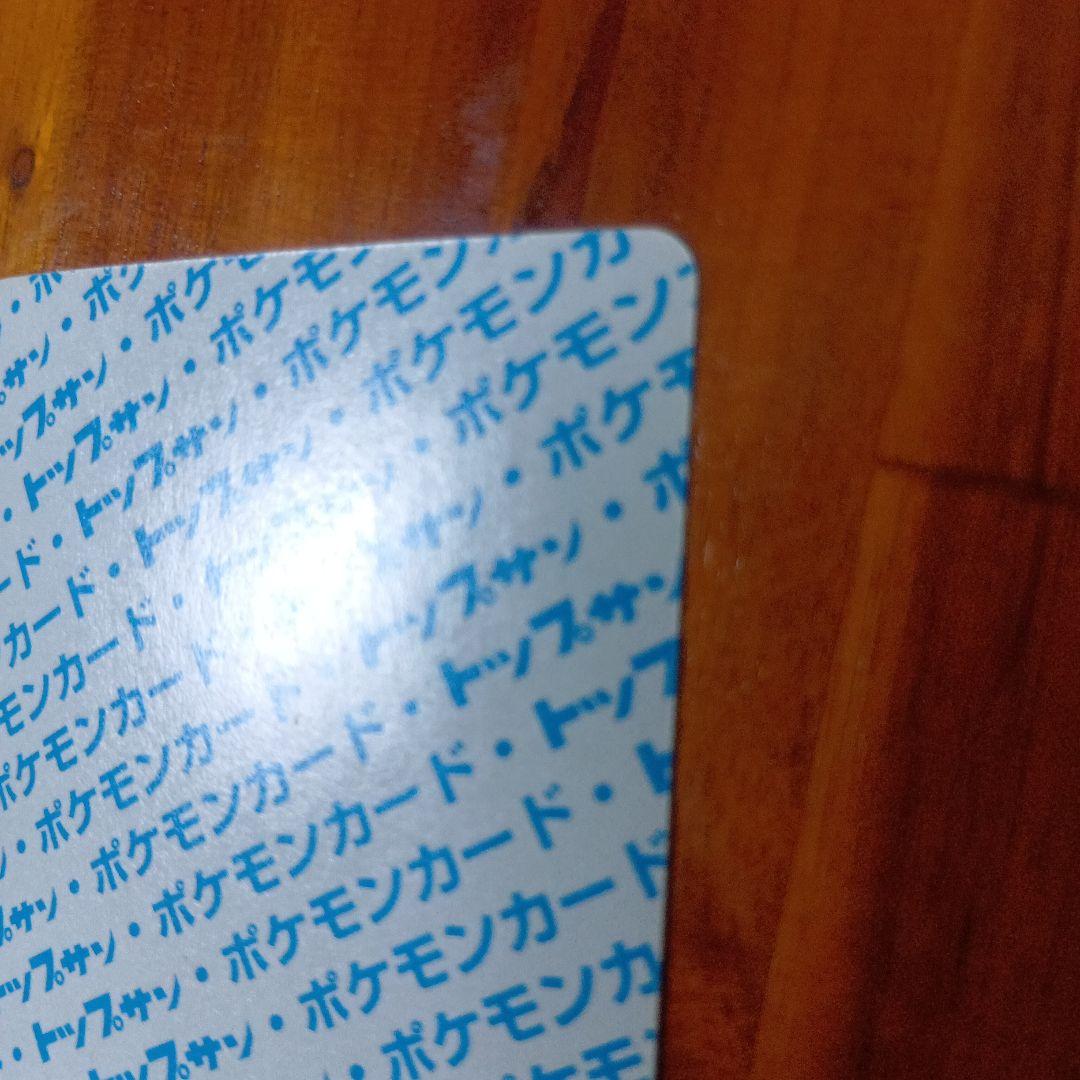 ・ポ
・ポケ
トップサン・ポケモン
・トップサン・ポケモン
・トップサン・ポケモン
ド・トップサン・ポケモンカ
カード・トップサン・ポケモンカ
モンカード・トップサン・ポケモンカ
ポケモンカード・トップサン・ポケモ
・ポケモンカード・トップサン・ポ
・ポケモンカード・トップサン
トップサン・ポケモンカード・トップ
・トップサン・ポケモンカード・ト
トップサン・ポケモンカード
・ポケモンカ
ポケモ